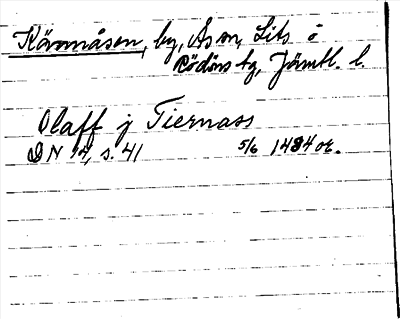 Kärnåsen, by, Ås sn, Lits o
Rödöns tg, Jämtl. l.
Olaff j Tiernass
DN 14, s. 41 5/6 1484 or.